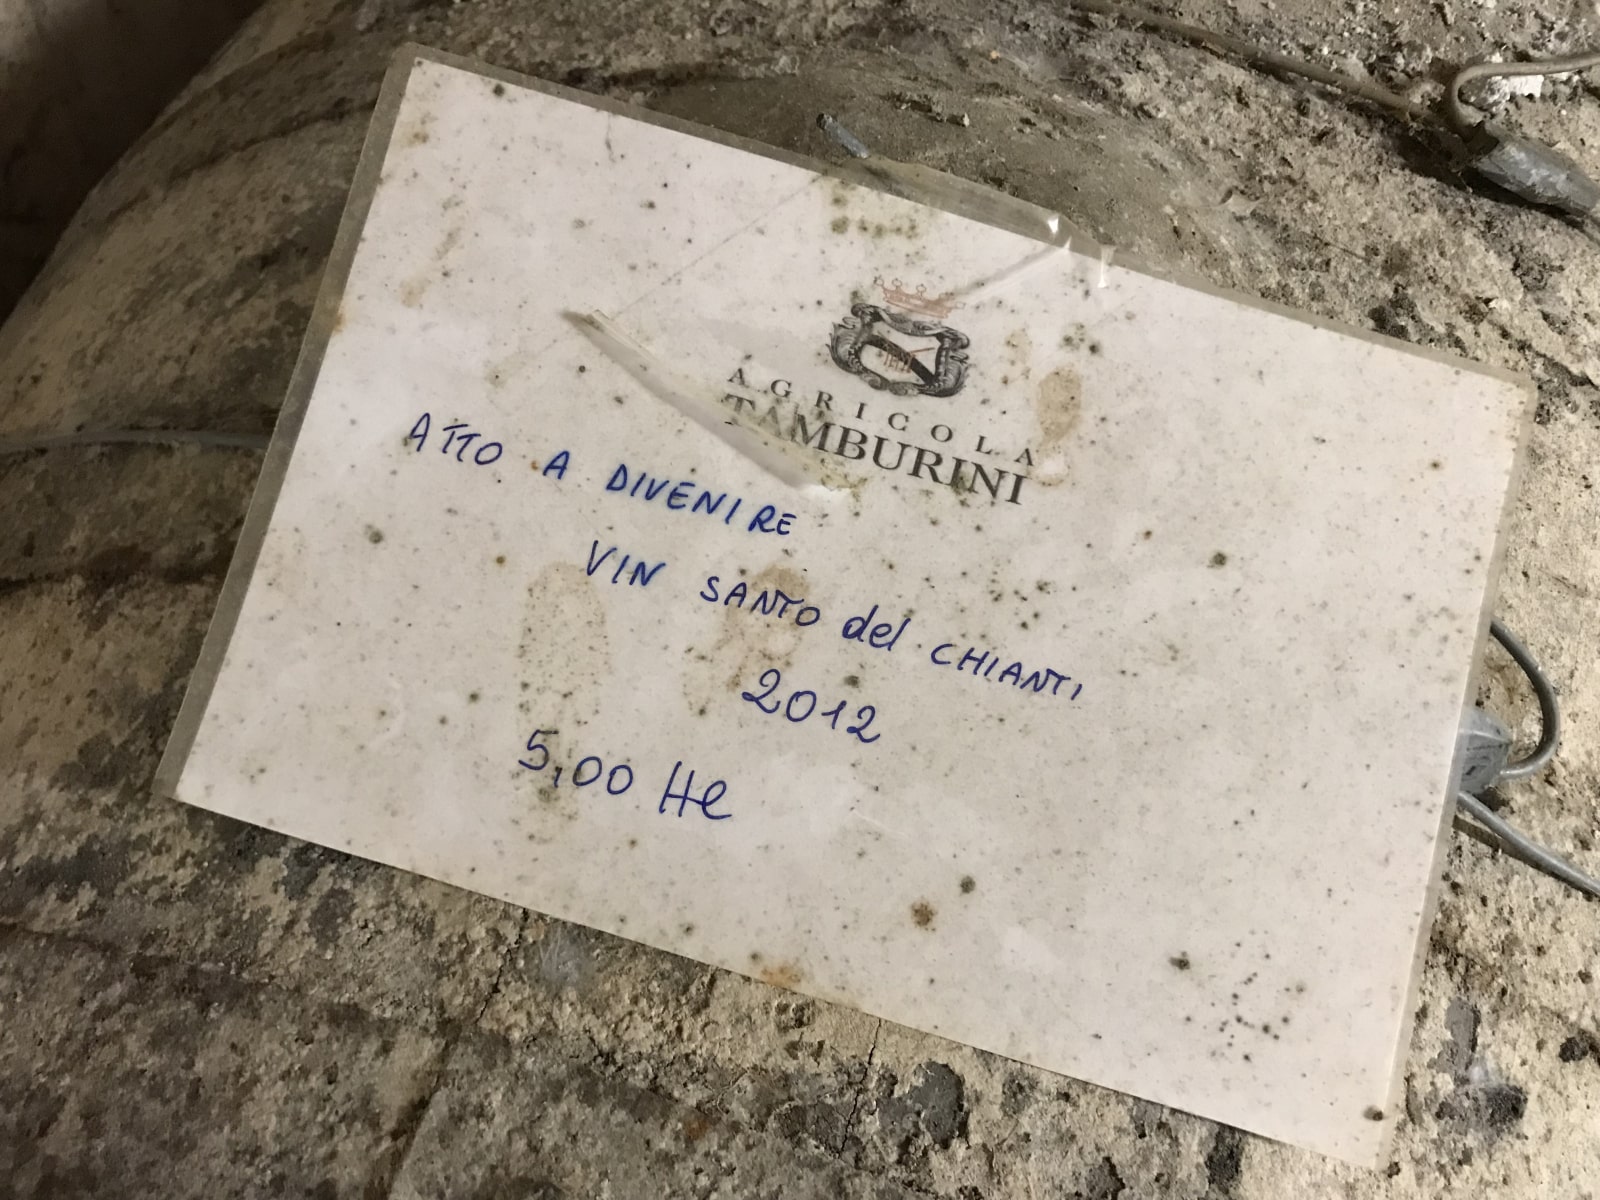 AGRICOLA
TAMBURINI
ATTO A DIVENIRE
VIN SANTO del CHIANTI
2012
5,00 Hl